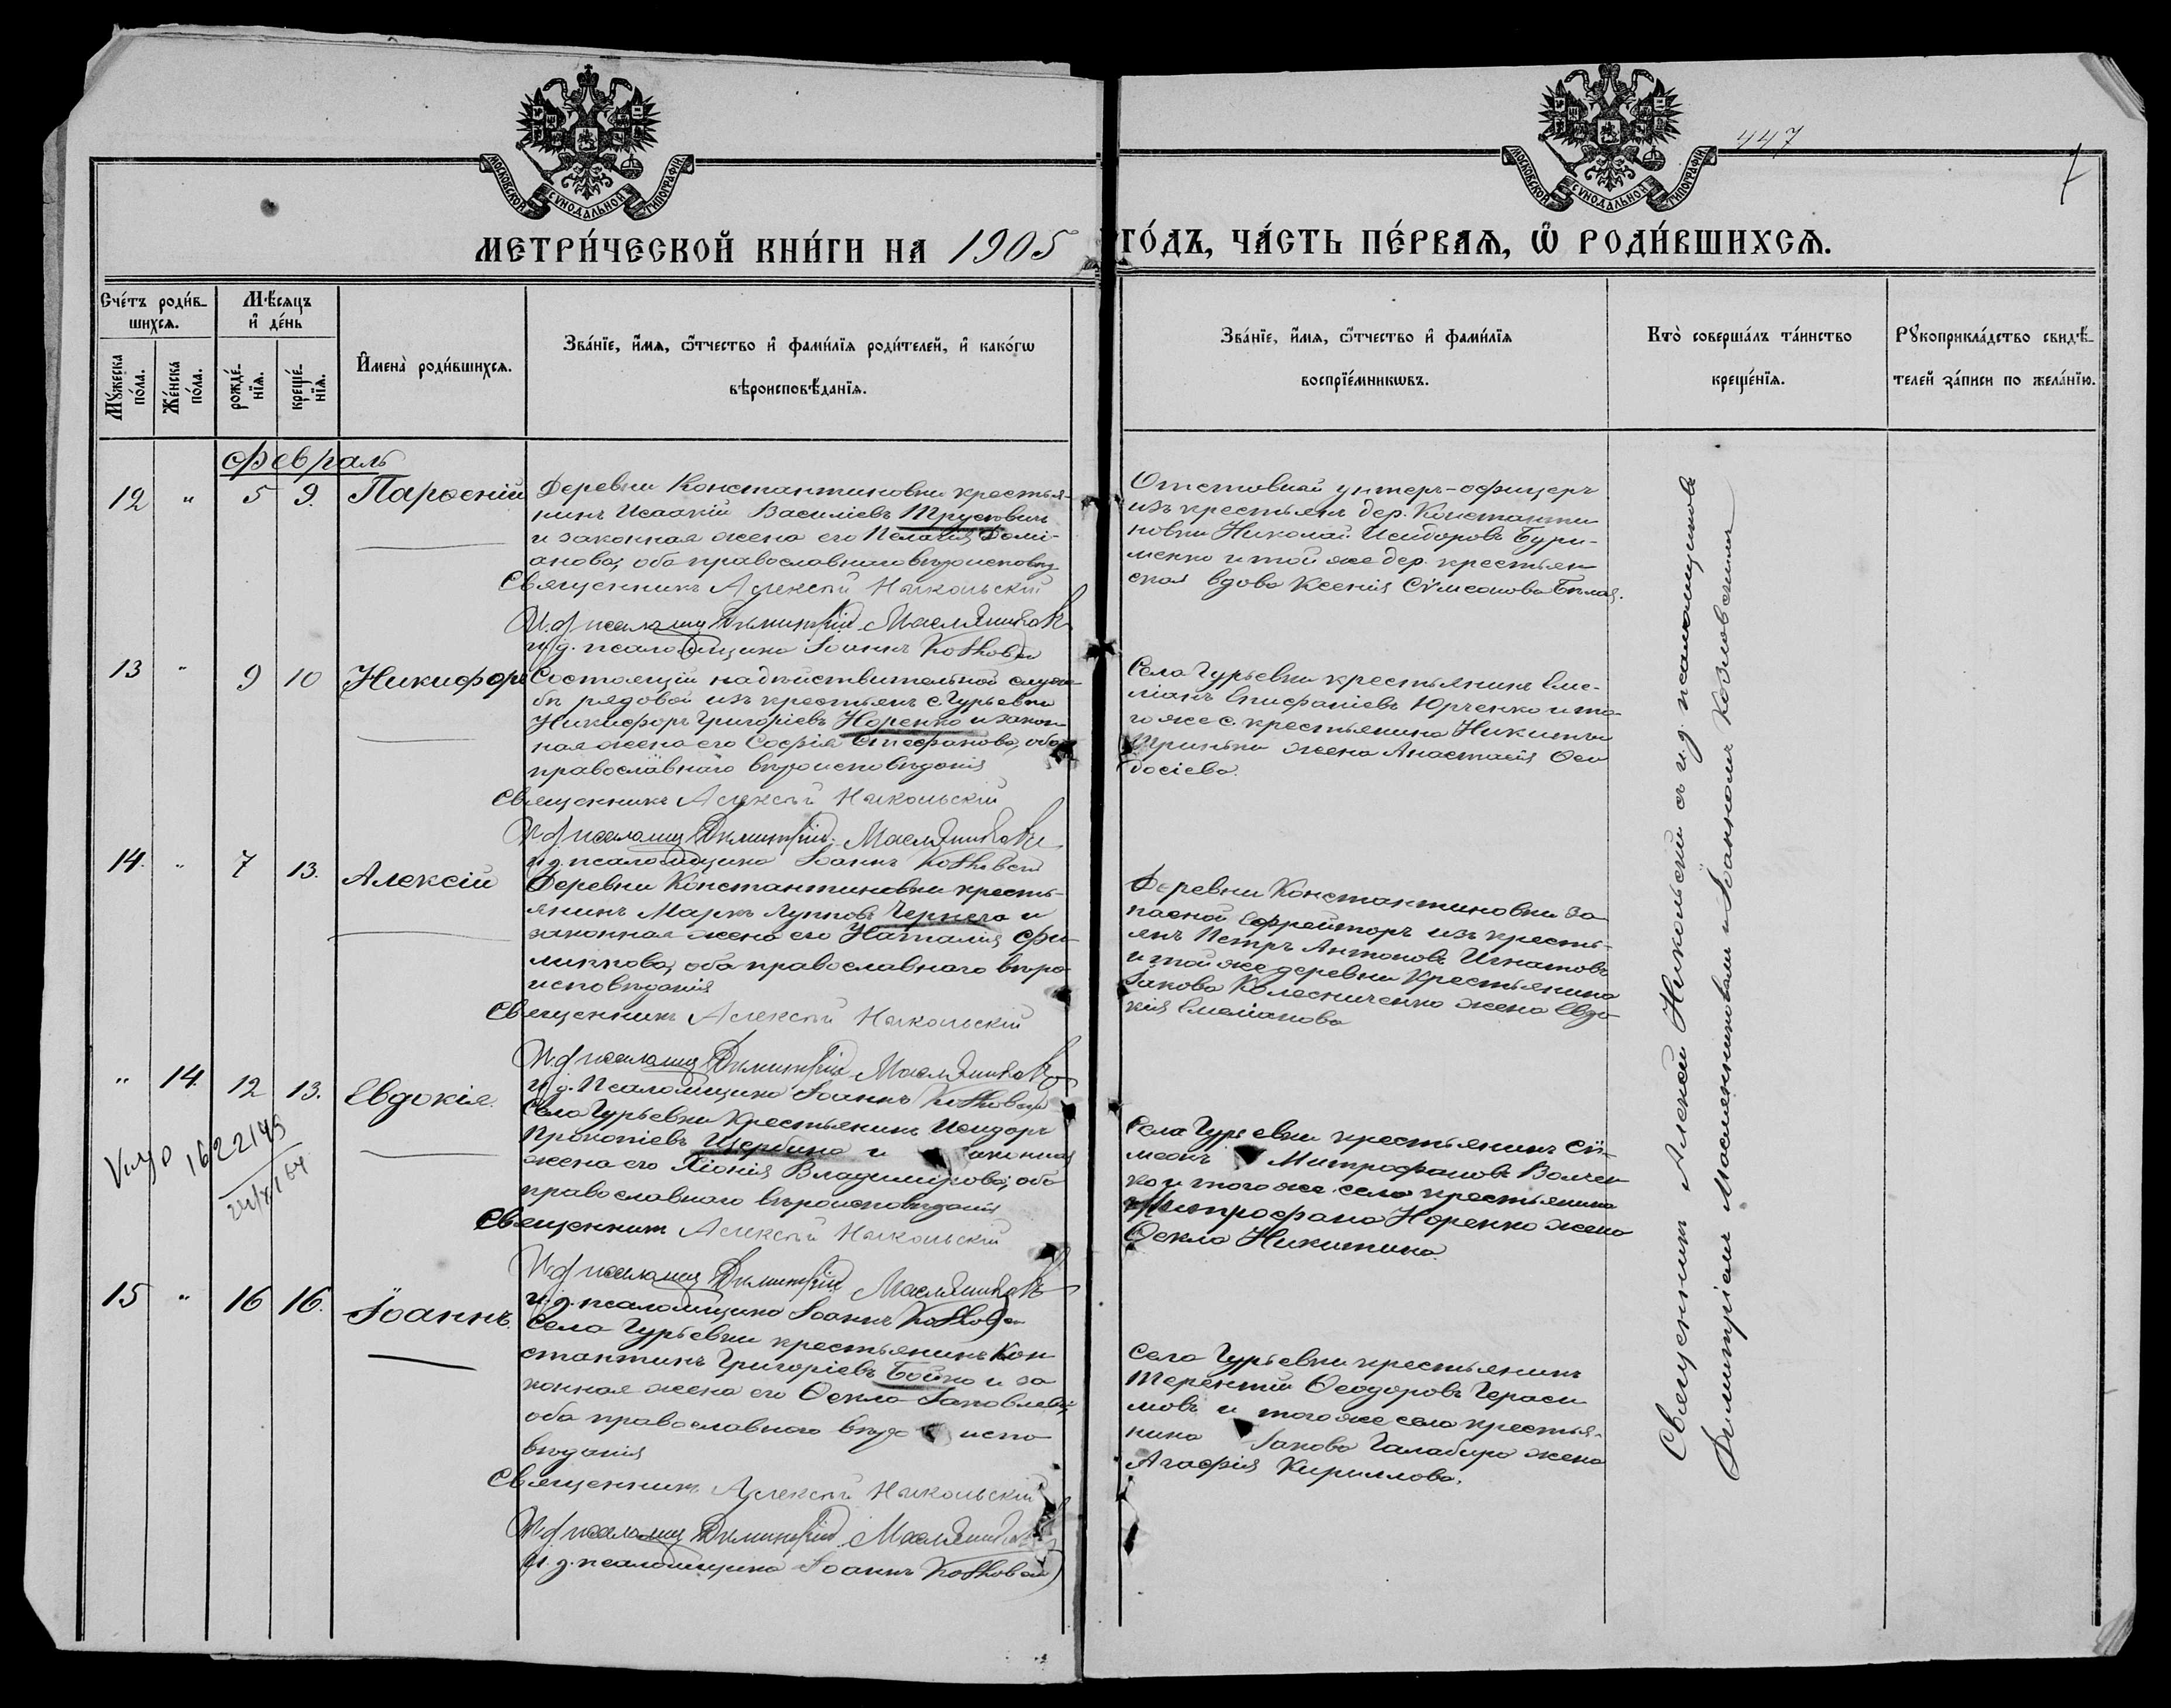 МОСКОВСКОЙ СѴНОДАЛЬНОЙ ТИПОГРАФІИ
МОСКОВСКОЙ СѴНОДАЛЬНОЙ ТИПОГРАФІИ
447
МЕТРИ́ЧЕСКОЙ КНИ́ГИ НА 1905 ГО́ДЪ, ЧА́СТЬ ПЕ́РВАѦ, Ѡ҆ РОДИ́ВШИХСѦ.
Сче́тъ роди́в-
шихсѧ.
Мꙋ́жеска
по́ла.
Же́нска
по́ла.
Мѣ́сѧцъ
и҆ де́нь
рожде́-
нїѧ.
креще́-
нїѧ.
И҆мена̀ роди́вшихсѧ.
Зва́нїе, и҆́мѧ, ѻ҆́тчество и҆ фами́лїѧ роди́телей, и҆ како́гѡ
вѣроисповѣ́данїѧ.
Зва́нїе, и҆́мѧ, ѻ҆́тчество и҆ фами́лїѧ
воспрїе́мникѡвъ.
Кто̀ соверша́лъ та́инство
креще́нїѧ.
Рꙋкоприкла́дство свидѣ́-
телей за́писи по жела́нїю.
Февраль
12 " 5 9. Парѳеній
Деревни Константиновки крестья-
нинъ Исаакій Василіевъ Трускович
и законная жена его Пелагія Домі-
анова, оба православнаго вѣроисповѣд
Священникъ Алексій Никольскій
И.д. псаломщ Димитрій Маслянников
и.д. псаломщика Іоаннъ Козловскій
Отставной унтеръ-офицеръ
изъ крестьянъ дер. Константи
новки Николай Исидоровъ Бури-
менко и той же дер. крестьян
ская вдова Ксенія Сѵмеонова Бѣлая.
13 " 9 10 Никифоръ
Состоящій на дѣйствительной служ-
бѣ рядовой изъ крестьянъ с. Гурьевки
Никифоръ Григоріевъ Норенко и закон-
ная жена его Софія Стефанова, оба
православнаго вѣроисповѣданія
Священникъ Алексій Никольскій
И.д. псаломщ Димитрій Маслянников
и.д. псаломщика Іоаннъ Козловскій
Села Гурьевки крестьянинъ Еме-
ліанъ Епифаніевъ Юрченко и то-
го же с. крестьянина Никиты
жена Анастасія Ѳео
досіева.
14. " 7 13. Алексій
Деревни Константиновки кресть-
янинъ Маркъ Лупповъ Чернега и
законная жена его Наталія Фи-
липпова, оба православнаго вѣро
исповѣданія
Священникъ Алексій Никольскій
И.д. псаломщ Димитрій Маслянников
и.д. псаломщика Іоаннъ Козловскій
Деревни Константиновки за
пасной Ефрейторъ изъ кресть-
янъ Петръ Антоновъ Игнатовъ
и той же деревни крестьянина
Іакова Колесниченко жена Евдо-
кія Емеліанова
" 14. 12 13. Евдокія.
1622149
Села Гурьевки крестьянинъ Исидоръ
Прокопіевъ Щербина и законная
жена его Хіонія Владимірова, оба
православнаго вѣроисповѣданія
Священникъ Алексій Никольскій
И.д. псаломщ Димитрій Маслянников
и.д. псаломщика Іоаннъ Козловскій
Села Гурьевки крестьянинъ Сѵ-
меонъ Митрофановъ Волчен
ко и того же села крестьянина
Митрофана Норенко жена
Ѳекла Никитина.
15 " 16 16. Іоаннъ.
Села Гурьевки крестьянинъ Кон
стантинъ Григоріевъ Бойко и за
конная жена его Ѳекла Іаковлева,
оба православнаго вѣро испо
вѣданія
Священникъ Алексій Никольскій
И.д. псаломщ Димитрій Маслянников
и.д. псаломщика Іоаннъ Козловскій
Села Гурьевки крестьянинъ
Терентій Ѳеодоровъ Гераси
мовъ и того же села крестья-
нина Іакова Галабура жена
Агафія Кириллова.
Священникъ Алексій Никольскій съ и.д. псаломщиковъ
Димитріемъ Маслянниковымъ и Іоанномъ Козловскимъ